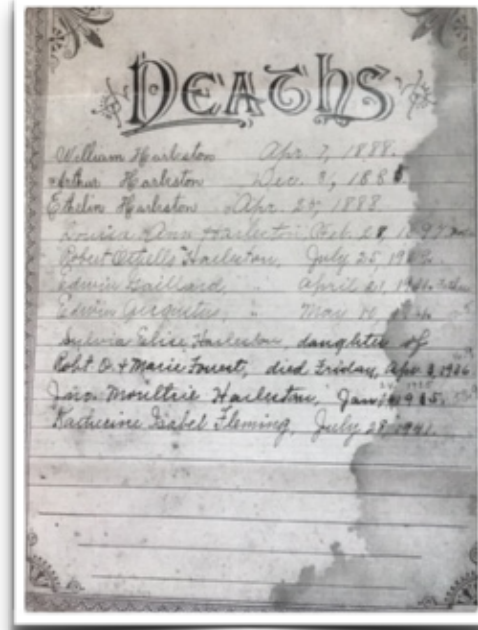 DEATHS
William Harleston Apr. 7, 1888.
Arthur Harleston Dec. 3, 188
Ethelin Harleston Apr. 25, 1888
Louisa Ann Harleston, Feb. 28,
Robert Othello Harleston, July 25, 19
Edwin Gaillard, " April 21, 19
Edwin Augustus, " May 10,
Sylvia Elise Harleston, daughter of
Robt O. & Marie Forrest, died Friday, Apr 3, 1926
Jno. Moultrie Harleston, Jan 1915.
Katherine Isabel Fleming, July 28, 1941.